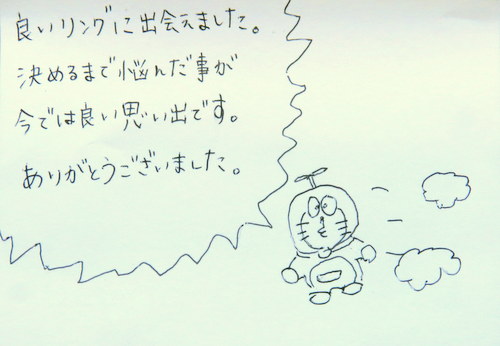 良いリングに出会えました。
決めるまで悩んだ事が
今では良い思い出です。
ありがとうございました。